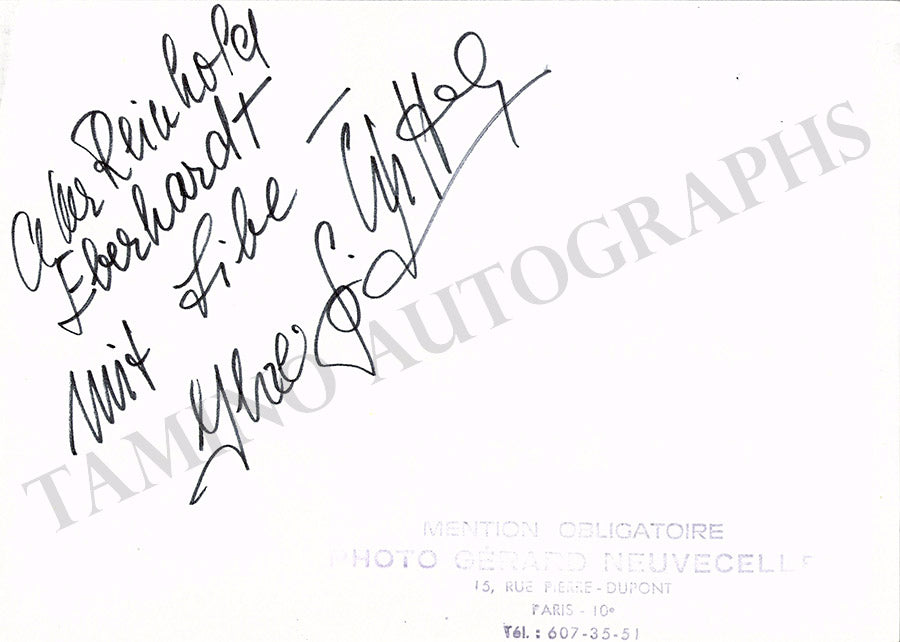 A Mr Reinhold
Eberhardt
mit Libe –
TAMINO AUTOGRAPHS
MENTION OBLIGATOIRE
PHOTO GÉRARD NEUVECELLE
15, RUE PIERRE-DUPONT
PARIS - 10e
Tél. : 607-35-51